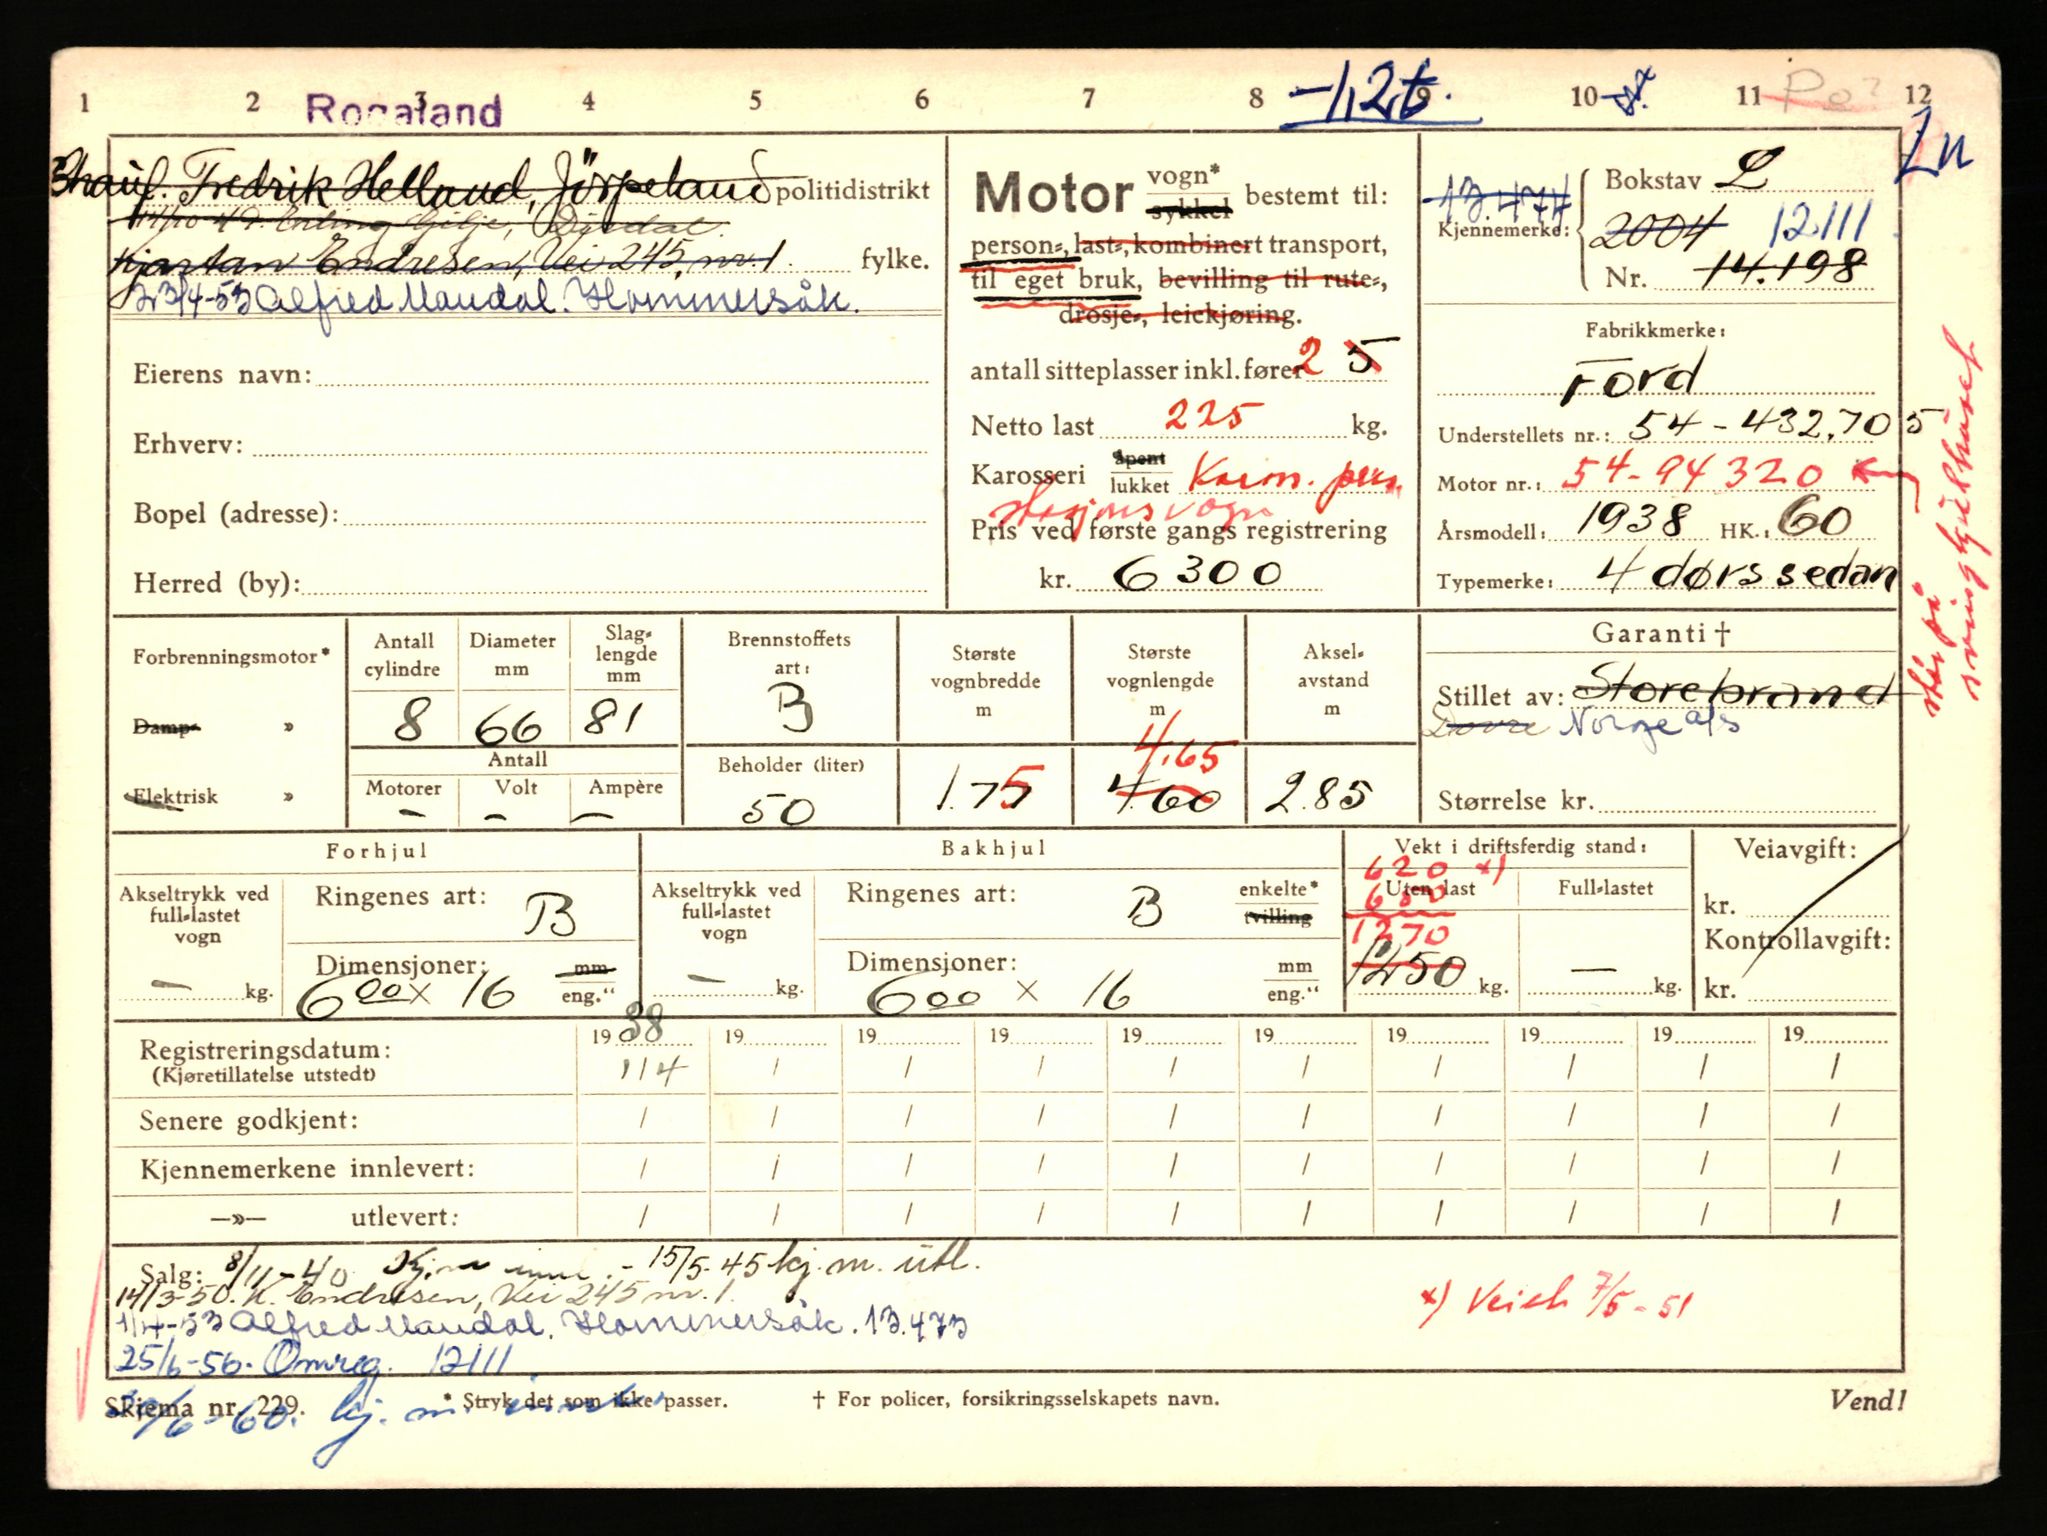 1 2 3 4 5 6 7 8 9 10 11 12
Rogaland
-1,2t.
Po?
Ln
Fredrik Helland, Jörpeland politidistrikt
Kjartan Endresen, Vei 245, nr. 1. fylke.
23/4-53 Alfred Maudal. Hommersåk.
Eierens navn:
Erhverv:
Bopel (adresse):
Herred (by):
Motor vogn* sykkel bestemt til:
person-, last-, kombinert transport,
til eget bruk, bevilling til rute-,
drosje-, leiekjøring.
antall sitteplasser inkl. fører 2 5
Netto last 225 kg.
Karosseri åpent lukket Kom. pers.
stasjonsvogn
Pris ved første gangs registrering
kr. 6300
13.474
Bokstav L
Kjennemerke: 2004 12111
Nr. 14.198
Fabrikkmerke:
Ford
Understellets nr.: 54-432.705
Motor nr.: 54-94320
Årsmodell: 1938 HK.: 60
Typemerke: 4 dørs sedan
står på svinghjulhuset
Garanti †
Stillet av: Storebrand
Dovre Norge a/s
Størrelse kr.
Forbrenningsmotor*
Damp- »
Elektrisk »
Antall cylindre 8
Diameter mm 66
Slaglengde mm 81
Antall
Motorer - Volt - Ampère -
Brennstoffets art: B
Beholder (liter) 50
Største vognbredde m 1.75
Største vognlengde m 4.65 4.60
Akselavstand m 2.85
Forhjul
Akseltrykk ved full-lastet vogn - kg.
Ringenes art: B
Dimensjoner: 6.00 x 16 mm eng."
Bakhjul
Akseltrykk ved full-lastet vogn - kg.
Ringenes art: B enkelte* tvilling
Dimensjoner: 6.00 x 16 mm eng."
Vekt i driftsferdig stand:
620 x)
Uten last Full-lastet
1270
1250 kg. - kg.
Veiavgift:
kr.
Kontrollavgift:
kr.
1938 19 19 19 19 19 19 19 19 19
Registreringsdatum: 1/4 / / / / / / / / /
(Kjøretillatelse utstedt)
Senere godkjent: / / / / / / / / / /
Kjennemerkene innlevert: / / / / / / / / / /
—»— utlevert: / / / / / / / / / /
Salg: 8/11-40 Kj.m. - 15/5-45 kj. m. utl.
14/3-50. K. Endresen, Vei 245 nr. 1.
1/4-53 Alfred Maudal. Hommersåk. 13.473
25/6-56. Omreg. 12111
x) Veid 7/5-51
Skjema nr. 229. * Stryk det som ikke passer. † For policer, forsikringsselskapets navn. Vend!
/6-60. kj. m.